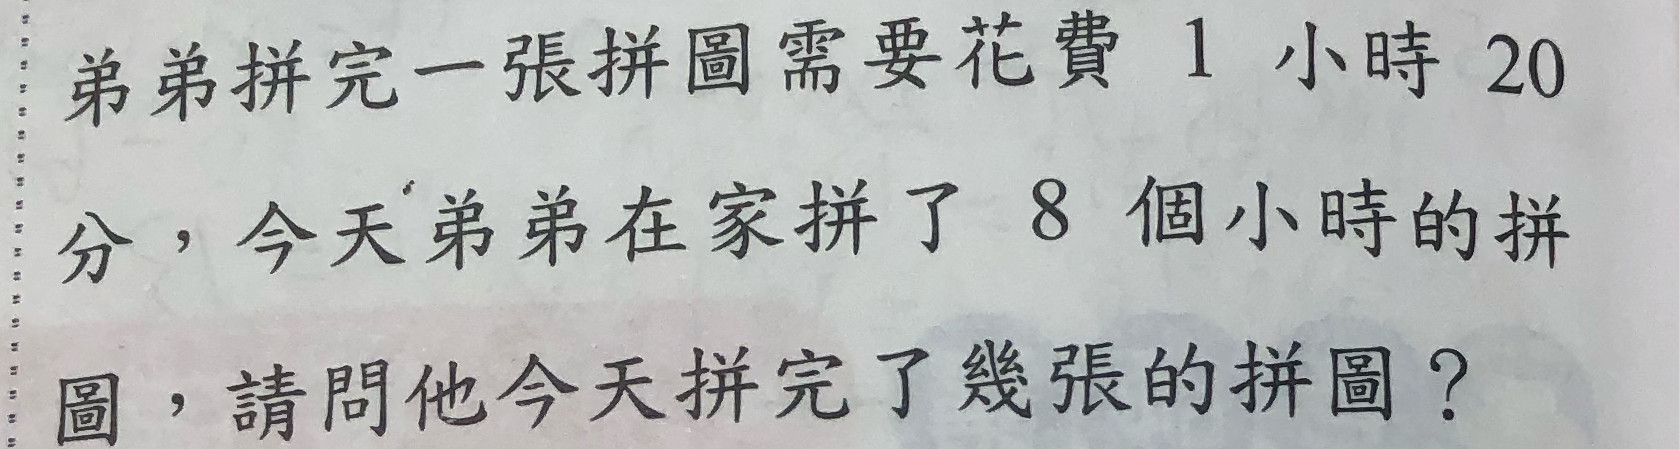 弟弟拼完一張拼圖需要花費 1 小時 20
分，今天弟弟在家拼了 8 個小時的拼
圖，請問他今天拼完了幾張的拼圖？